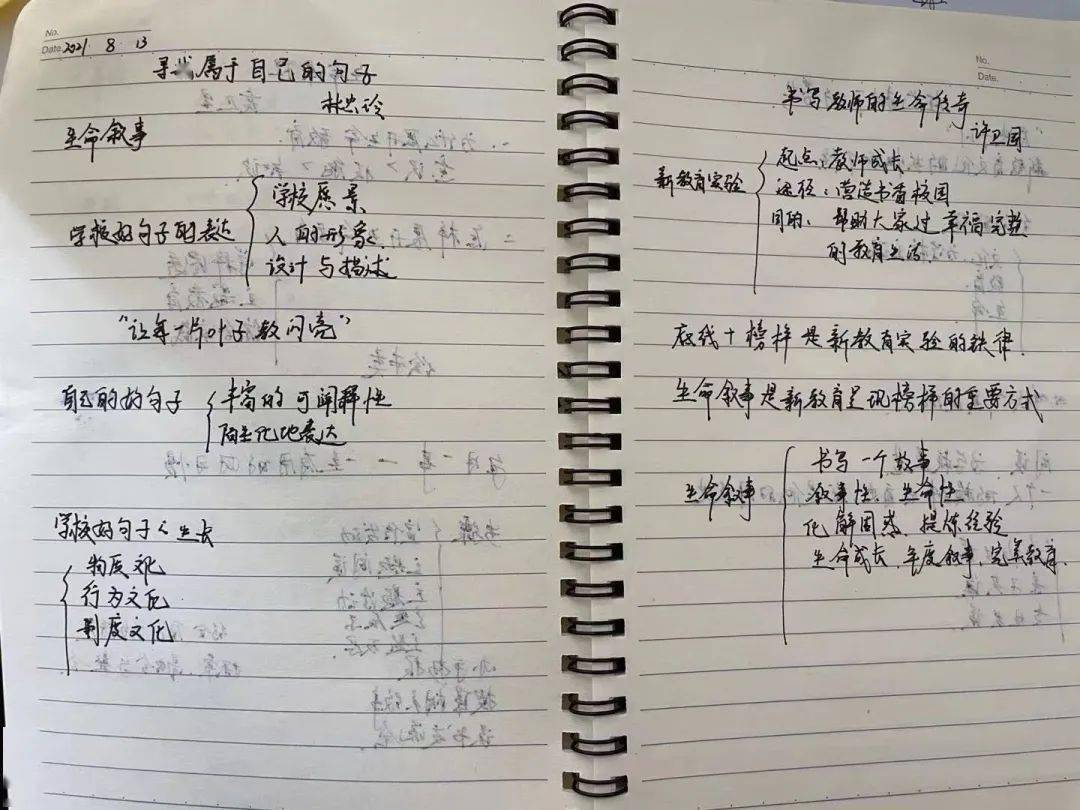 No.
Date 2021 8 13
寻找属于自己的句子
林忠玲
生命叙事
学校好句子的表达
学校愿景
人的形象
设计与描述
"让每一片叶子都闪亮"
自己的好句子
丰富的可阐释性
陌生化地表达
学校好句子的生长
物质文化
行为文化
制度文化
No.
Date.
书写教师的生命传奇
许卫国
新教育实验
起点:教师成长
途径:营造书香校园
目的:帮助大家过幸福完整
的教育生活
底线+榜样是新教育实验的铁律.
生命叙事是新教育呈现榜样的重要方式
生命叙事
书写一个故事
叙事性、生命性
化解困惑、提炼经验
生命成长、年度叙事、完美教室